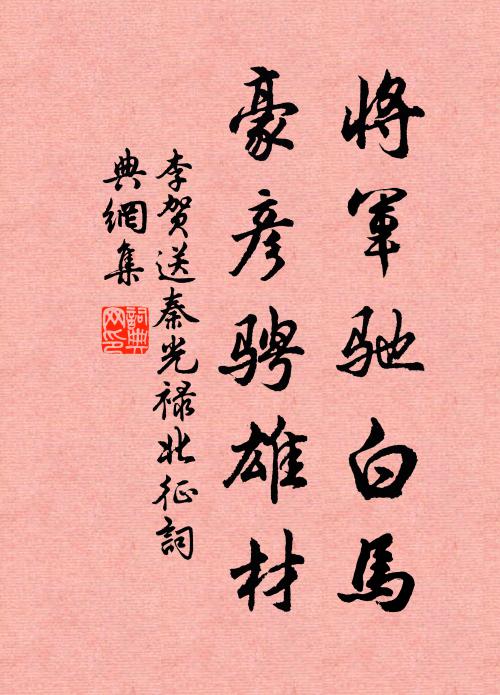 將軍馳白馬
豪彥騁雄材
李賀送秦光禄北征詞
典網集
詞典
网印